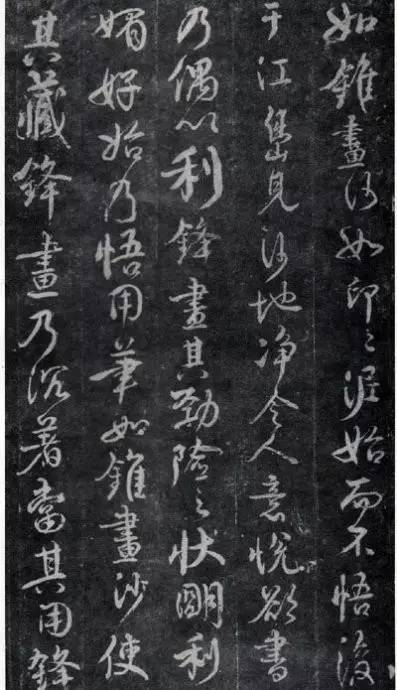 如錐畫沙如印々泥始而不悟後
于江島見沙地净令人意悅欲書
乃偶以利鋒畫其勁險之狀明利
媚好始乃悟用筆如錐畫沙使
其藏鋒畫乃沉著當其用鋒